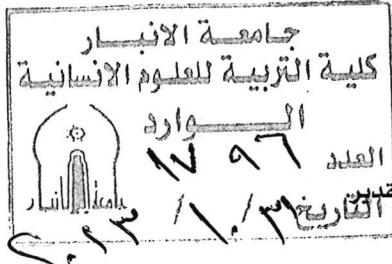 جامعة الانبار
كلية التربية للعلوم الانسانية
الـــوارد
العدد ١٧٠٩٦
التاريخ ٣١ / ١٠ / ٢٠٢٣
جامعة الانبار